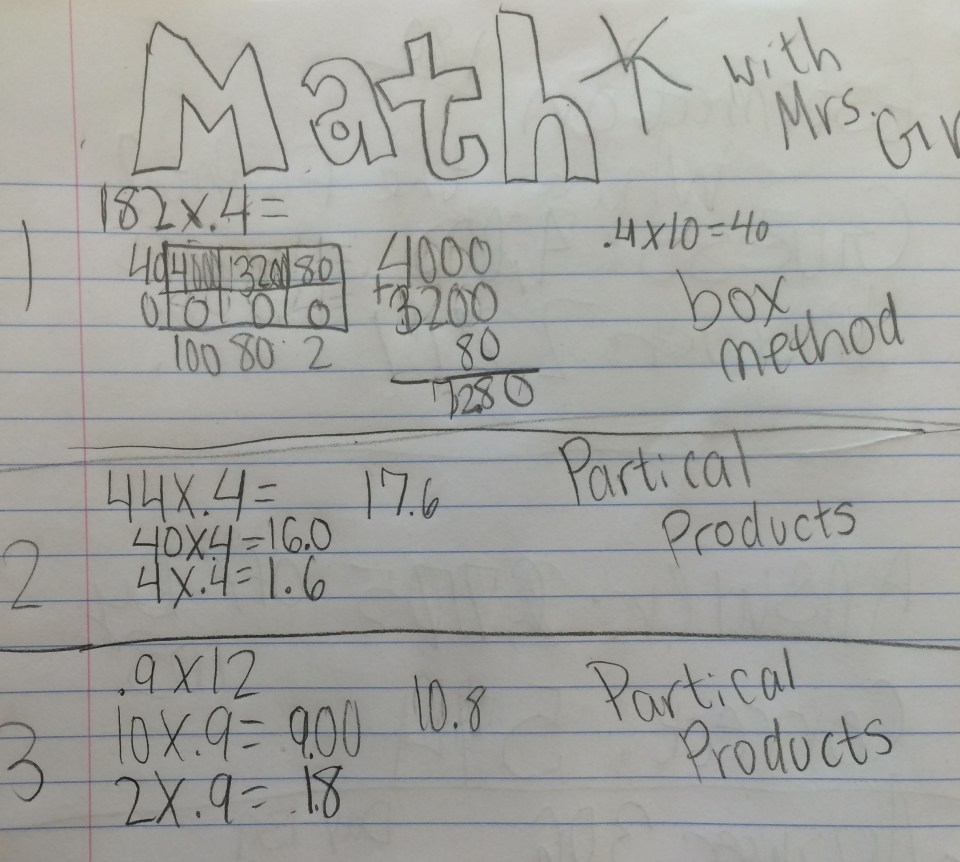 Math* with
Mrs.
1
182x.4=
40 4000 3200 80
0 0 0 0
100 80 2
4000
+3200
80
7280
.4x10=40
box
method
2
44x.4= 17.6
40x.4=16.0
4x.4=1.6
Partical
Products
3
.9x12
10x.9= 9.00 10.8
2x.9= 1.8
Partical
Products